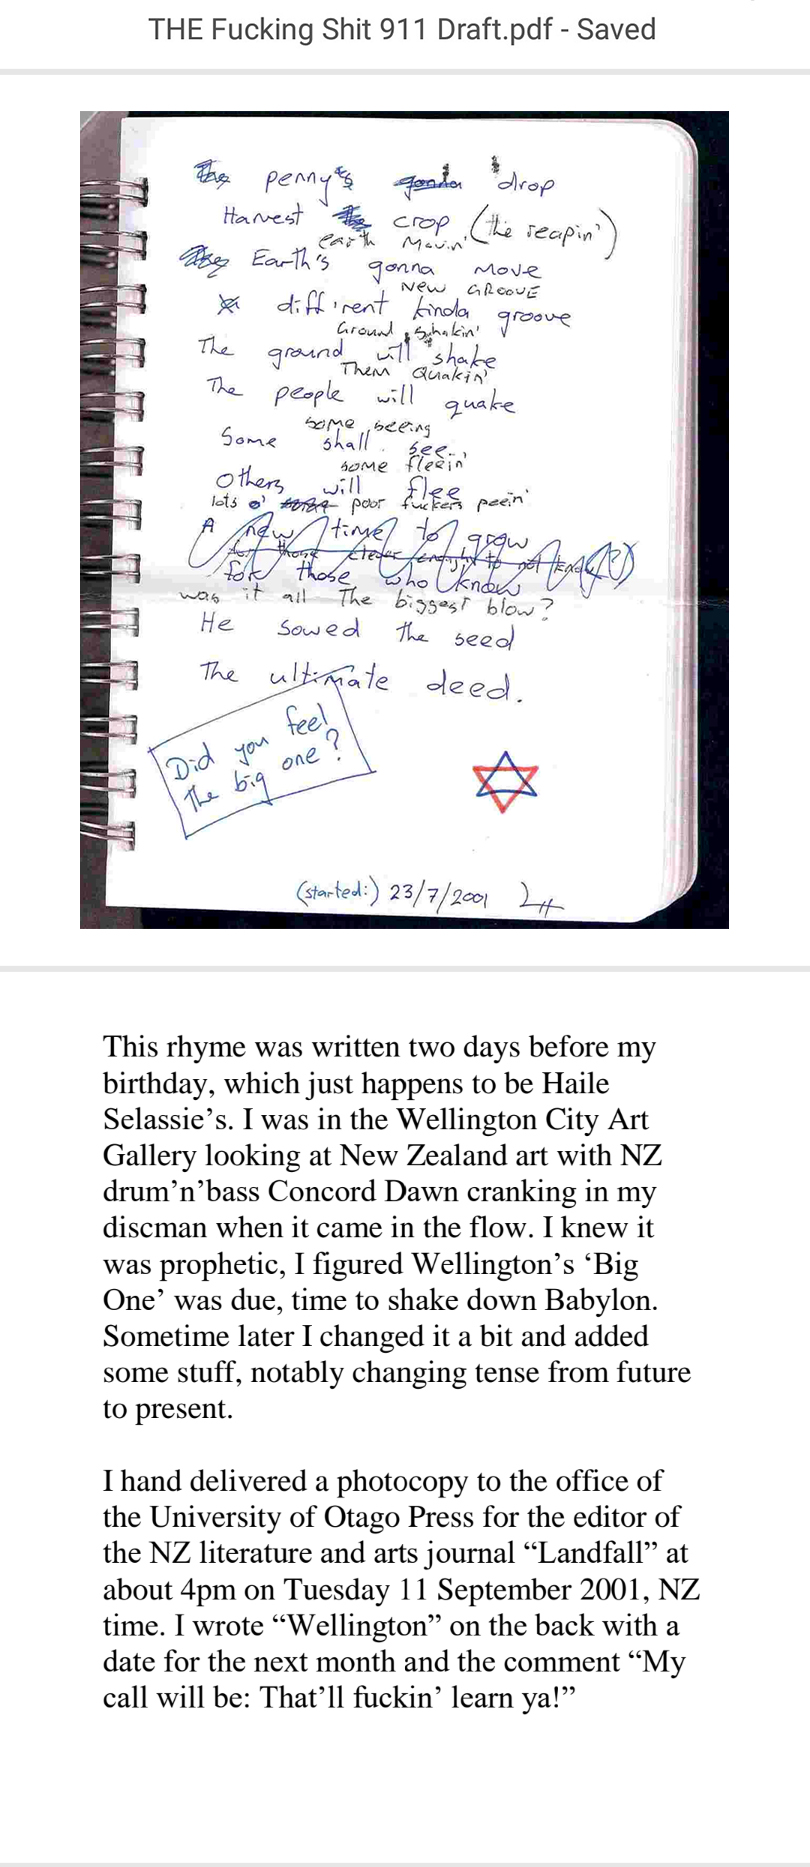 THE Fucking Shit 911 Draft.pdf - Saved
The penny's gonna drop
Harvest the crop (the reapin')
earth Movin'
The Earth's gonna move
New GROOVE
diff'rent kinda groove
Ground shakin'
The ground will shake
Them Quakin'
The people will quake
some seeing
Some shall see
some fleein'
others will flee
lots o' poor fuckers peein'
A new time to grow
for those clever enough to not know (?)
for those who know
was it all The biggest blow?
He sowed the seed
The ultimate deed.
Did you feel
The big one?
(started:) 23/7/2001
This rhyme was written two days before my
birthday, which just happens to be Haile
Selassie’s. I was in the Wellington City Art
Gallery looking at New Zealand art with NZ
drum’n’bass Concord Dawn cranking in my
discman when it came in the flow. I knew it
was prophetic, I figured Wellington’s ‘Big
One’ was due, time to shake down Babylon.
Sometime later I changed it a bit and added
some stuff, notably changing tense from future
to present.
I hand delivered a photocopy to the office of
the University of Otago Press for the editor of
the NZ literature and arts journal “Landfall” at
about 4pm on Tuesday 11 September 2001, NZ
time. I wrote “Wellington” on the back with a
date for the next month and the comment “My
call will be: That’ll fuckin’ learn ya!”